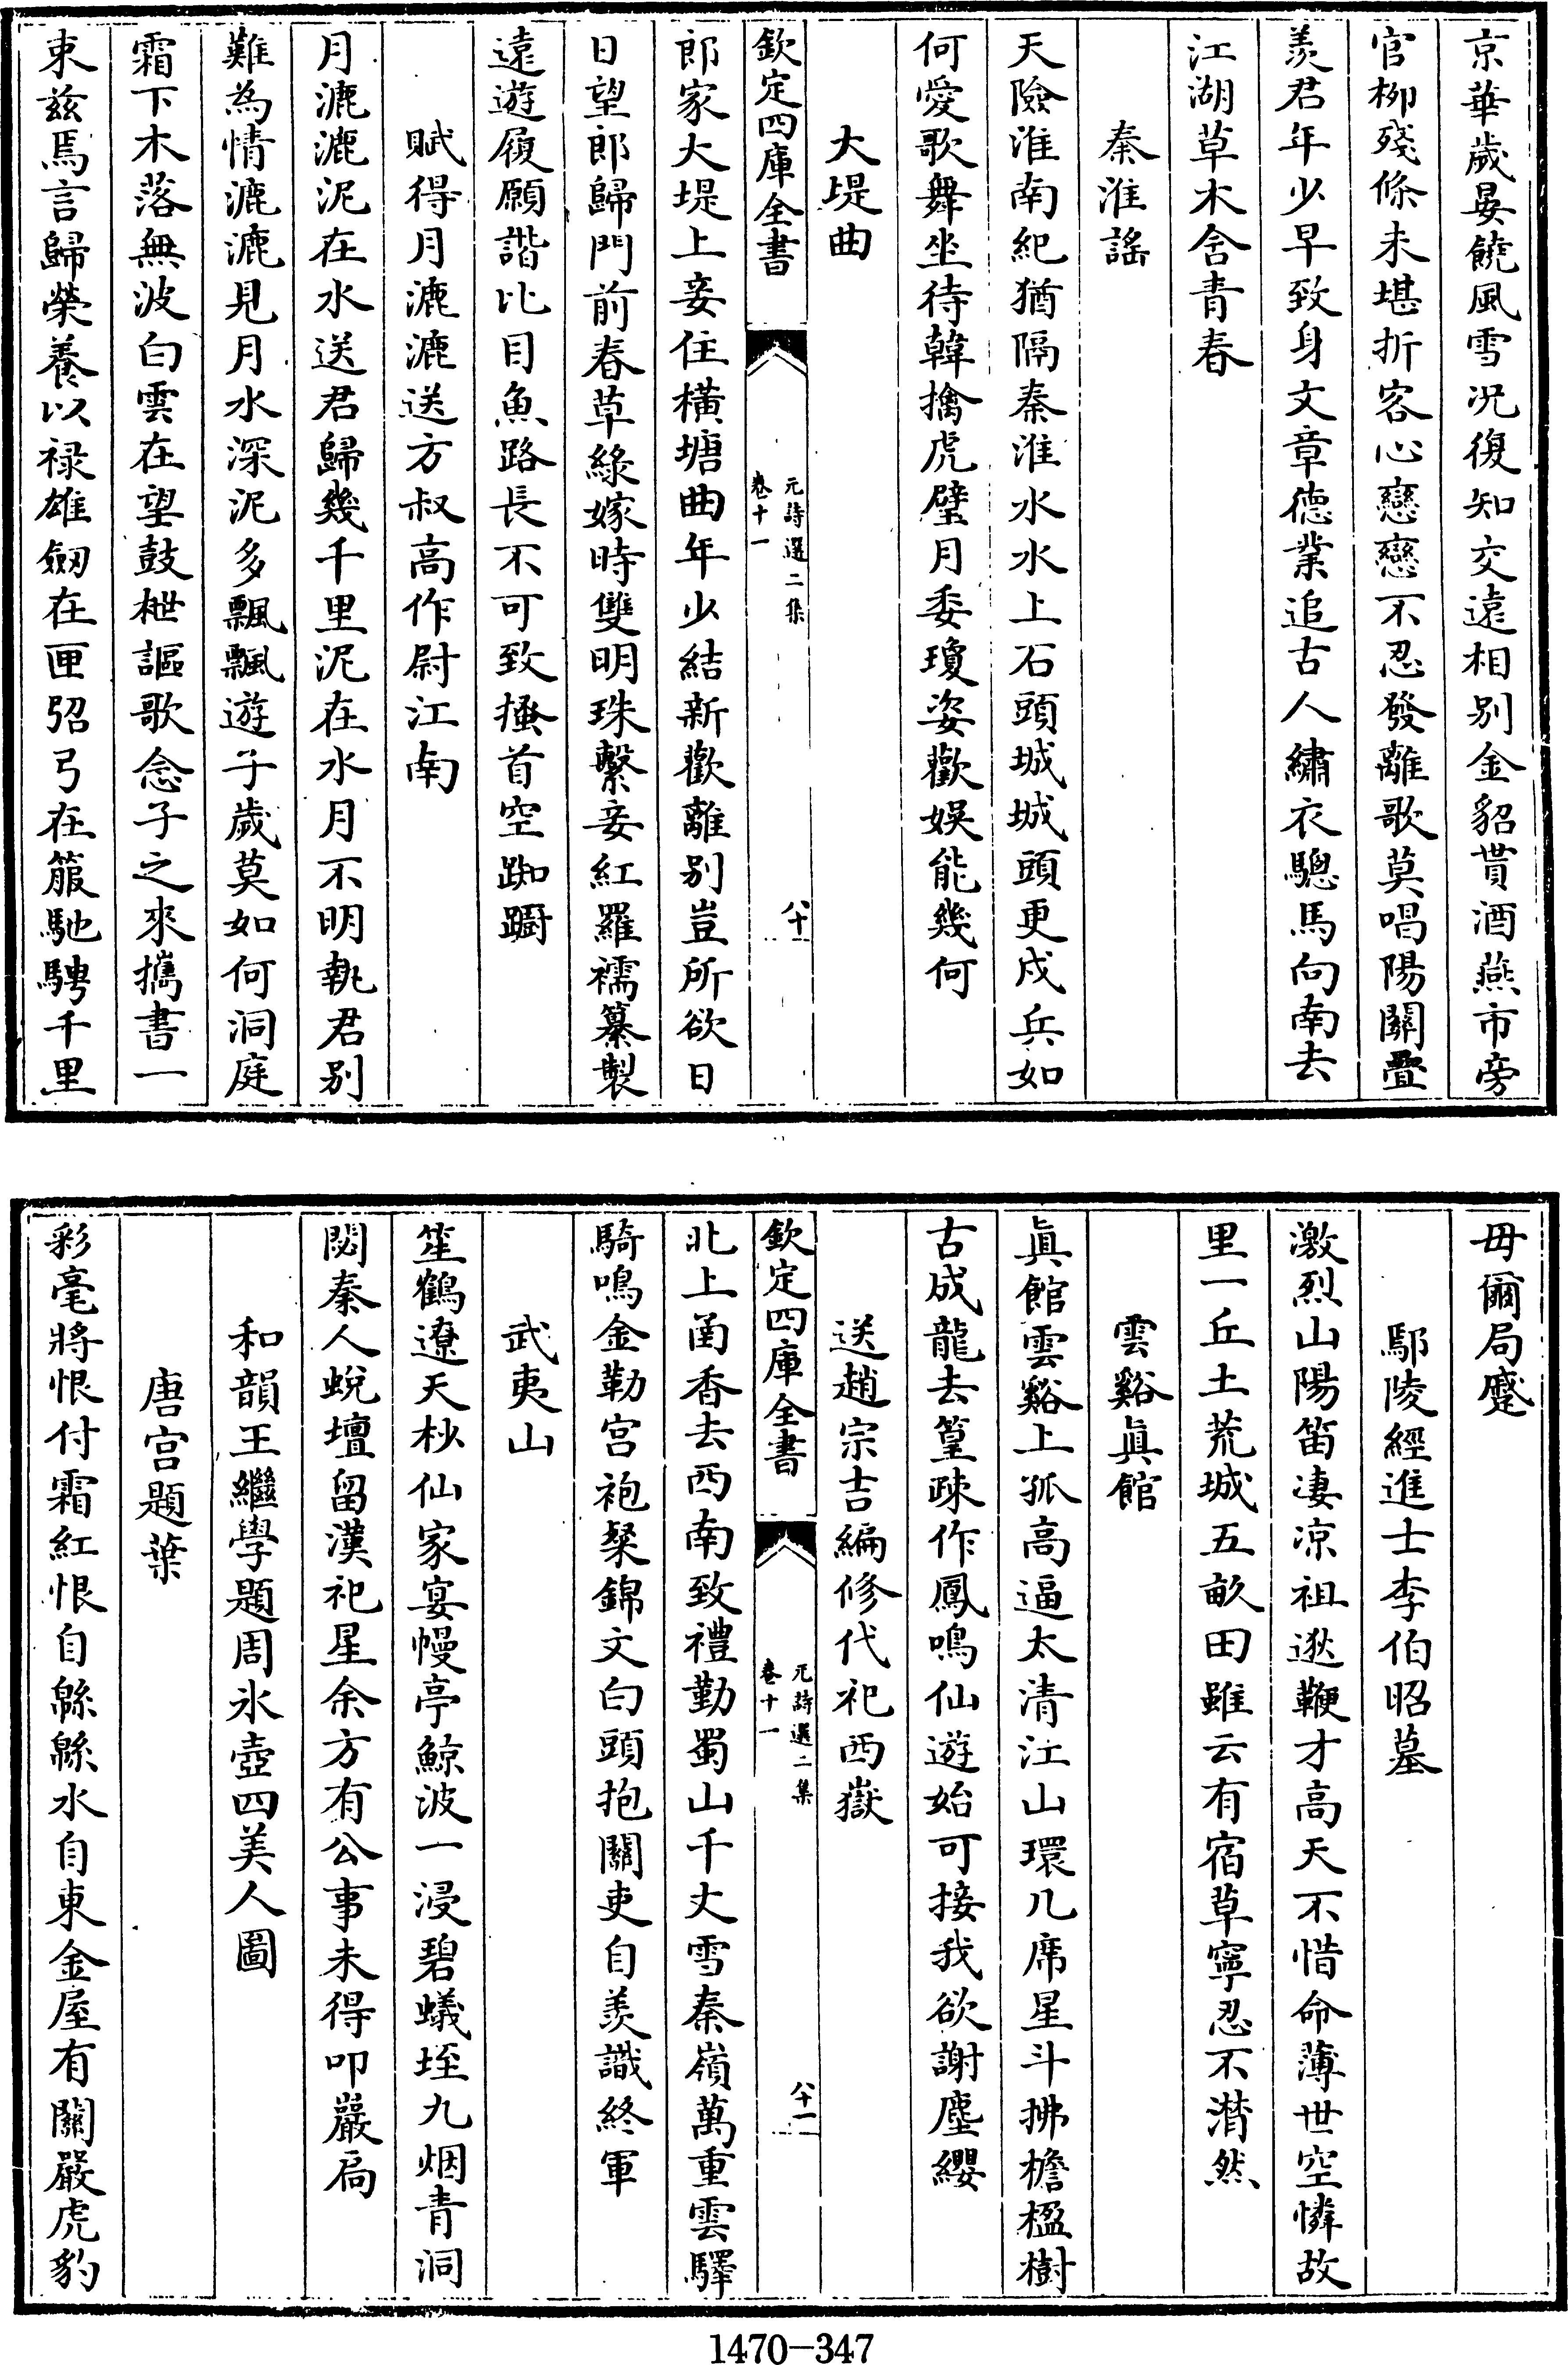 京華歲晏饒風雪况復知交遠相别金貂貰酒燕市旁
官柳殘條未堪折客心戀戀不忍發離歌莫唱陽關疊
羨君年少早致身文章德業追古人繡衣驄馬向南去
江湖草木含青春
秦淮謡
天險淮南紀猶隔秦淮水水上石頭城城頭更戍兵如
何愛歌舞坐待韓擒虎璧月委瓊姿歡娱能幾何
大堤曲
欽定四庫全書
元詩選二集
卷十一
八十
郎家大堤上妾住橫塘曲年少結新歡離别豈所欲日
日望郎歸門前春草綠嫁時雙明珠繫妾紅羅襦纂製
遠遊履願諧比目魚路長不可致搔首空踟躕
賦得月漉漉送方叔高作尉江南
月漉漉泥在水送君歸幾千里泥在水月不明執君别
難為情漉漉見月水深泥多飄飄遊子歲莫如何洞庭
霜下木落無波白雲在望鼓枻謳歌念子之來攜書一
束兹焉言歸榮養以禄雄劔在匣弨弓在箙馳騁千里
毋爾局蹙
鄢陵經進士李伯昭墓
激烈山陽笛凄凉祖逖鞭才高天不惜命薄世空憐故
里一丘土荒城五畝田雖云有宿草寧忍不潸然
雲谿眞館
眞館雲谿上孤高逼太清江山環几席星斗拂檐楹樹
古成龍去篁疎作鳳鳴仙遊始可接我欲謝塵纓
送趙宗吉編修代祀西嶽
欽定四庫全書
元詩選二集
卷十一
八十一
北上函香去西南致禮勤蜀山千丈雪秦嶺萬重雲驛
騎鳴金勒宫袍粲錦文白頭抱關吏自羨識終軍
武夷山
笙鶴遼天杪仙家宴幔亭鯨波一浸碧蟻垤九烟青洞
閟秦人蜕壇留漢祀星余方有公事未得叩巖扃
和韻王繼學題周氷壺四美人圖
唐宫題葉
彩毫將恨付霜紅恨自緜緜水自東金屋有關嚴虎豹
1470-347